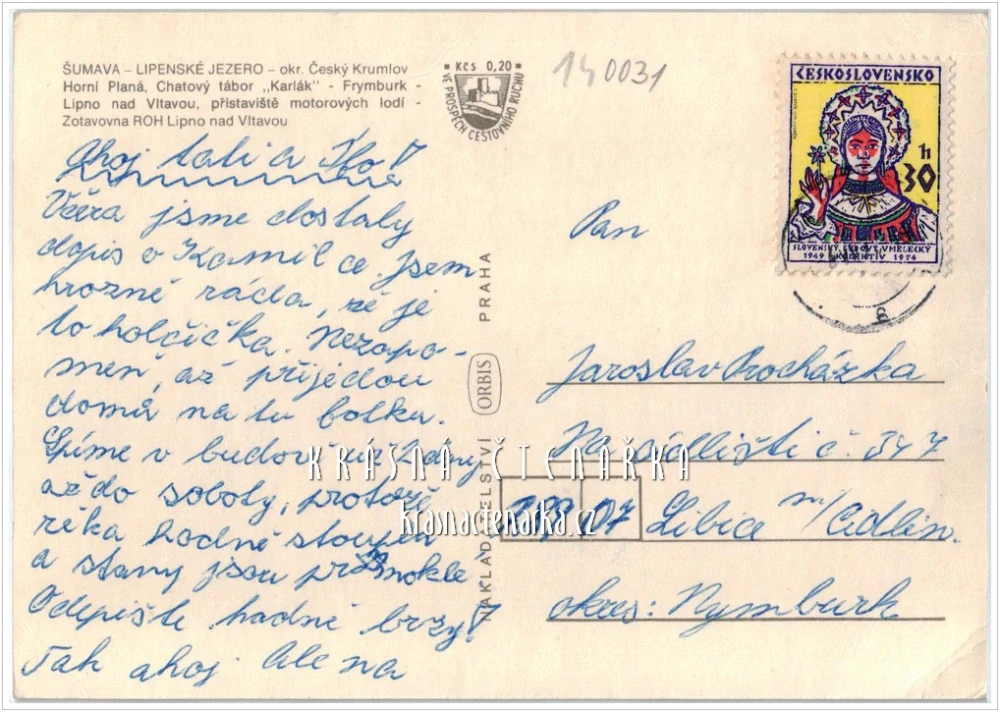 ŠUMAVA – LIPENSKÉ JEZERO – okr. Český Krumlov
Horní Planá, Chatový tábor ,,Karlák" - Frymburk -
Lipno nad Vltavou, přístaviště motorových lodí -
Zotavovna ROH Lipno nad Vltavou
KČS 0,20
VE PROSPĚCH CESTOVNÍHO RUCHU
140031
ahoj tati a
Včera jsme dostaly
dopis o Kamilce. Jsem
hrozně ráda, že je
to holčička. Nezapo-
men, až přijedou
domů na tu fotku.
Spíme v budově už
až do soboty, protože
řeka hodně stoupla
a stany jsou promokle
Odepište hodně brzy!
Tak ahoj Alena
NAKLADATELSTVÍ ORBIS PRAHA
ČESKOSLOVENSKO
30 h
SLOVENSKÝ ĽUDOVÝ UMELECKÝ
1949 KOLEKTÍV 1974
Pan
Jaroslav Procházka
Na sídlišti č. 347
289 07 Libice n/Cidlin.
okres: Nymburk
KRÁSNÁ ČTENÁŘKA
krasnactenarka.cz